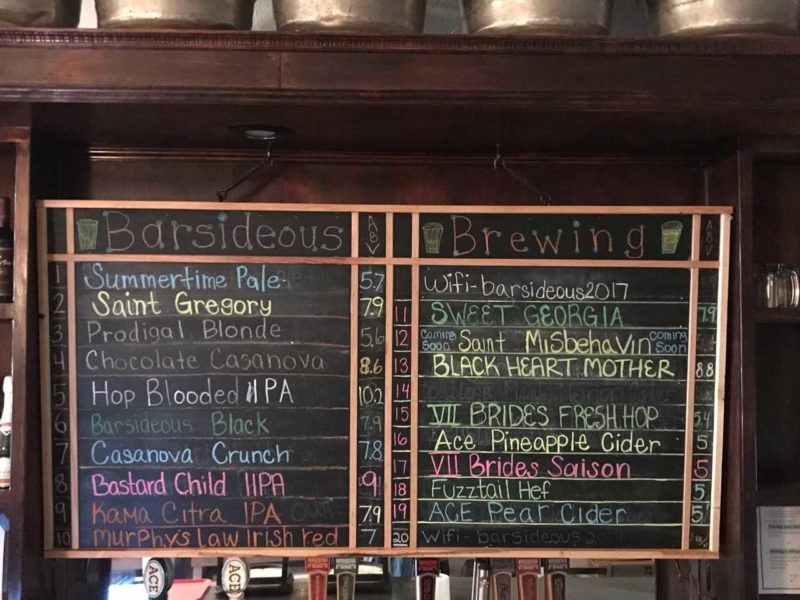 Barsideous ABV
1 Summertime Pale 5.7
2 Saint Gregory 7.9
3 Prodigal Blonde 5.6
4 Chocolate Casanova 8.6
5 Hop Blooded IIPA 10.2
6 Barsideous Black 7.9
7 Casanova Crunch 7.8
8 Bastard Child IIPA 9
9 Kama Citra IPA 7.9
10 Murphys Law Irish red 7
Brewing ABV
Wifi-barsideous2017
11 SWEET GEORGIA 7.9
12 Coming Soon Saint Misbehavin Coming Soon
13 BLACK HEART MOTHER 8.8
14
15 VII BRIDES FRESH HOP 5.4
16 Ace Pineapple Cider 5
17 VII Brides Saison 5
18 Fuzztail Hef 5
19 ACE Pear Cider 5
20 Wifi-barsideous
ACE
ACE